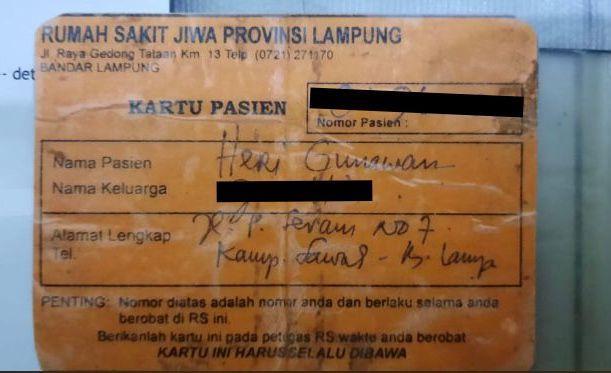 RUMAH SAKIT JIWA PROVINSI LAMPUNG
Jl. Raya Gedong Tataan Km 13 Telp (0721) 271170
BANDAR LAMPUNG
- det
KARTU PASIEN
Nomor Pasien :
Nama Pasien Heri Gunawan
Nama Keluarga
Alamat Lengkap Jl. P. Seram No 7
Tel. Kamp. Sawah - B. Lampu
PENTING: Nomor diatas adalah nomor anda dan berlaku selama anda
berobat di RS ini.
Berikanlah kartu ini pada petugas RS waktu anda berobat
KARTU INI HARUS SELALU DIBAWA